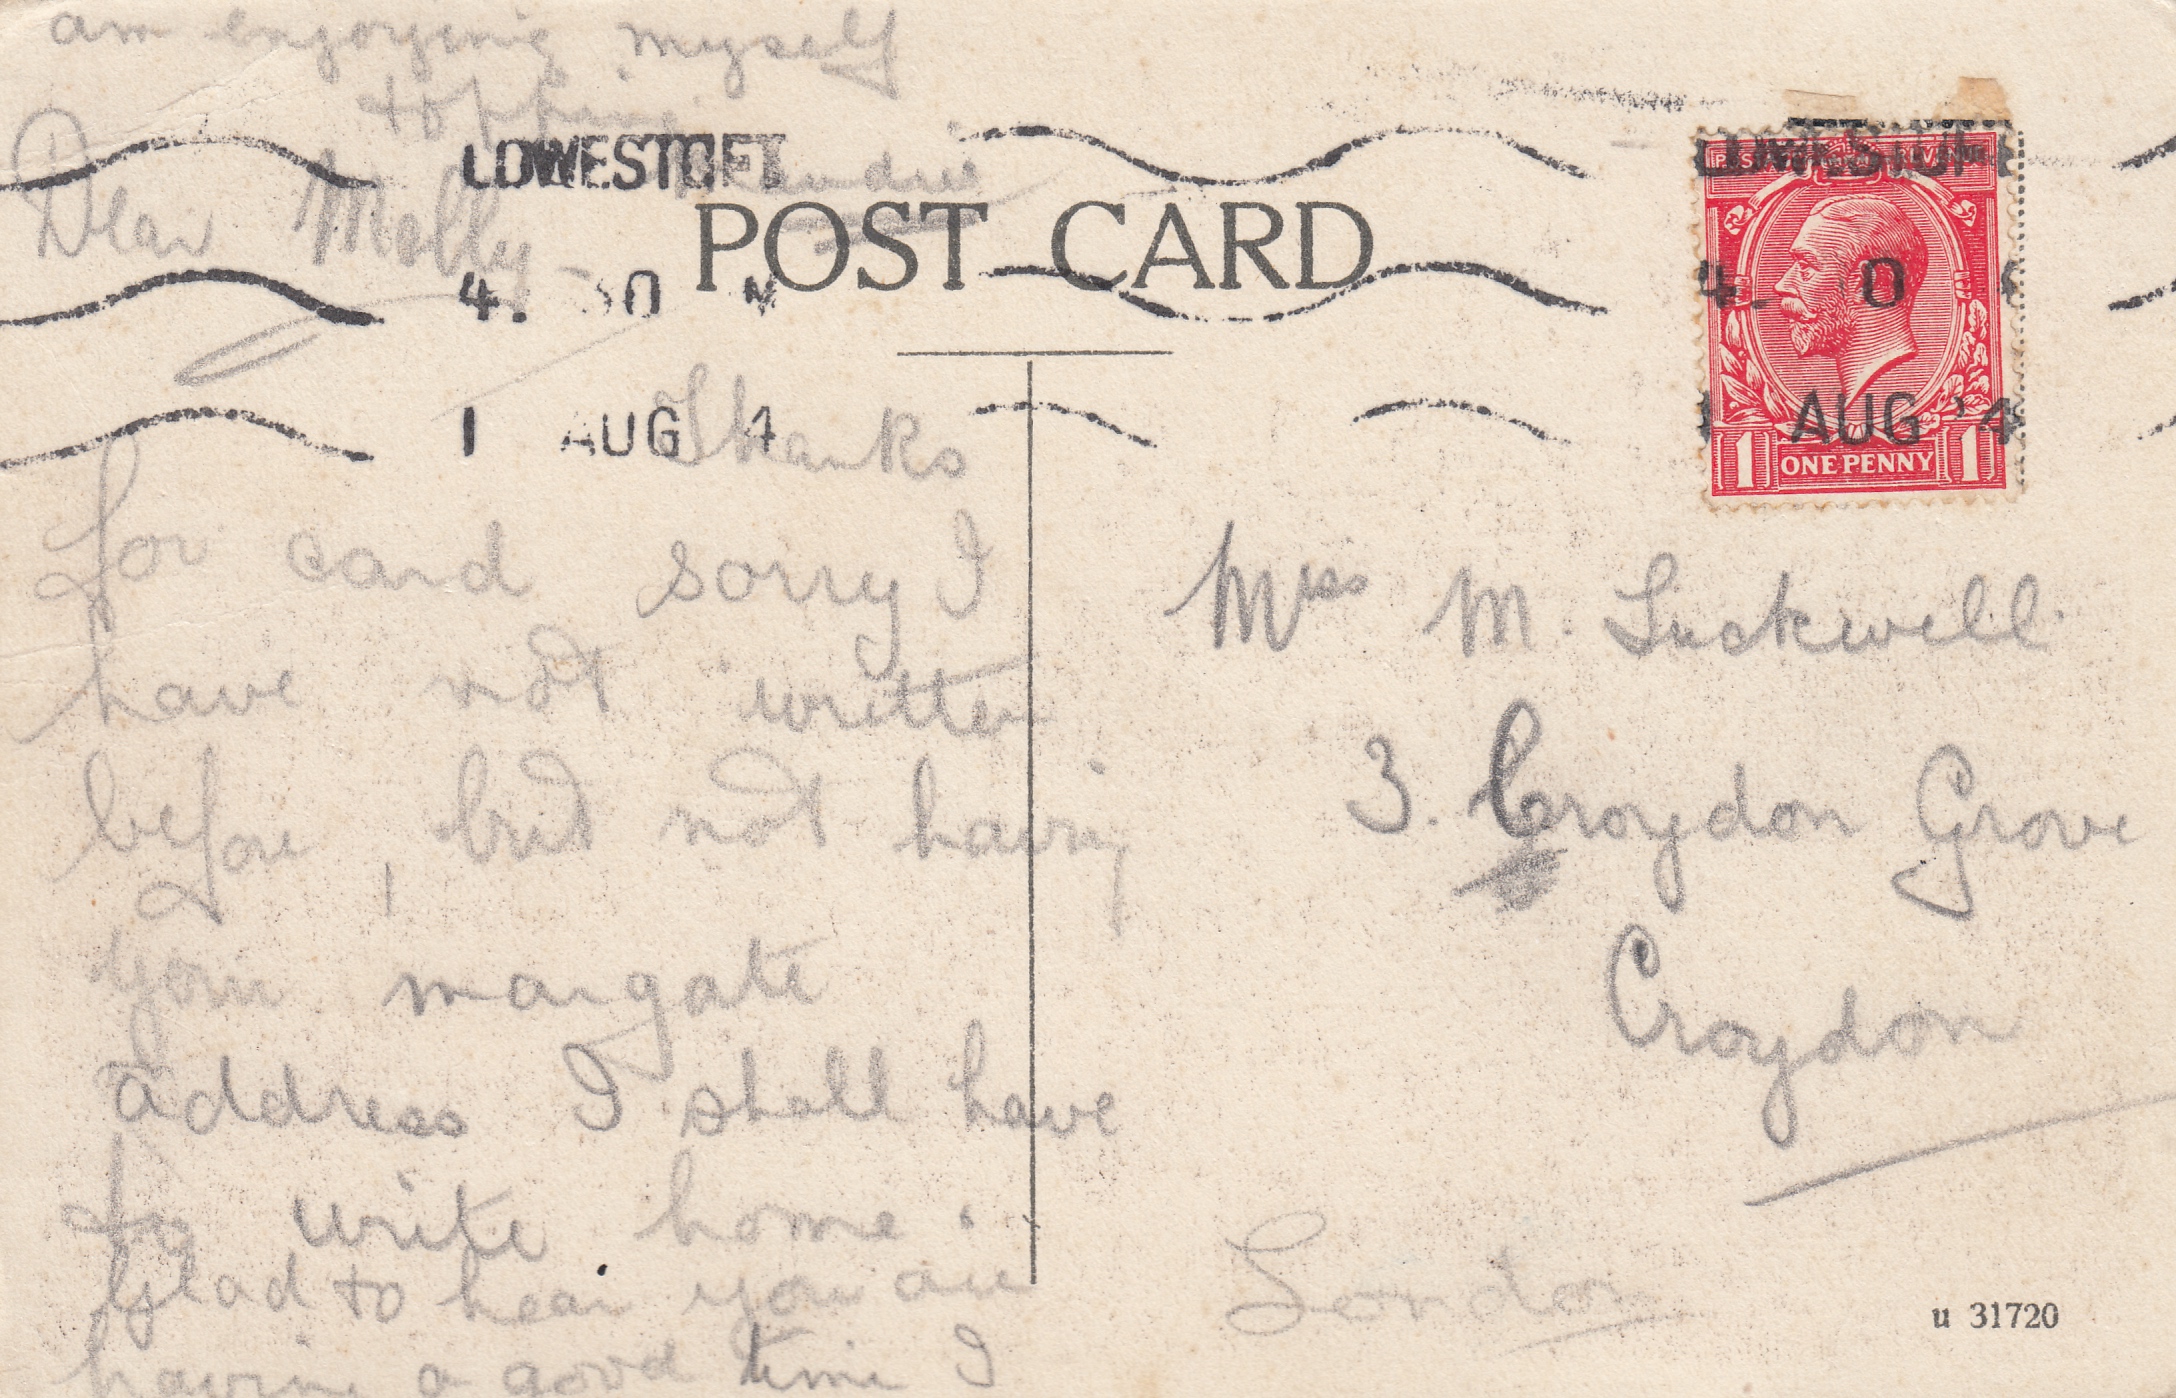 am enjoying myself
topping
LOWESTOFT
Dear Molly
POST CARD
4. 30 M
1 AUG 4
Thanks
for card sorry I
have not written
before, but not having
your margate
address I shall have
to write home.
glad to hear you are
having a good time I
LOWESTOFT
4. 0
1 AUG 4
1 ONE PENNY 1
Miss M. Luckwell
3. Croydon Grove
Croydon
London
u 31720